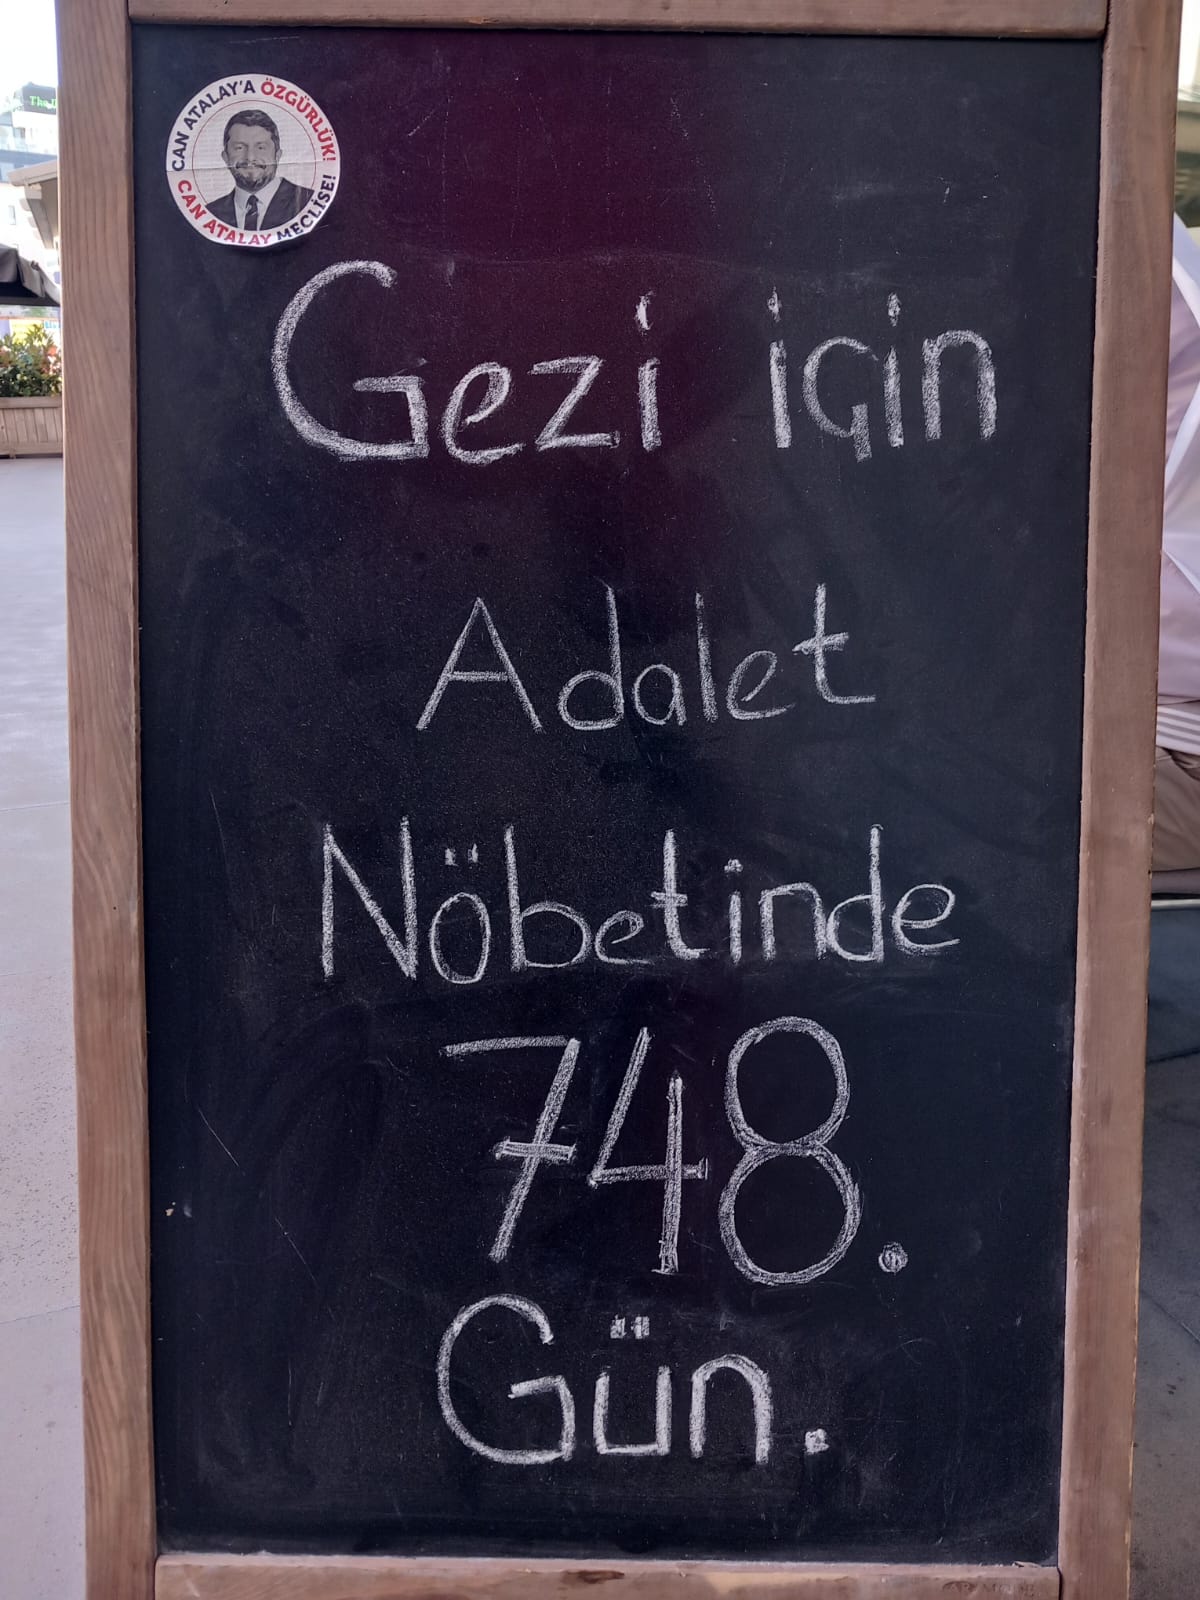 CAN ATALAY'A ÖZGÜRLÜK!
CAN ATALAY MECLİSE!
Gezi için
Adalet
Nöbetinde
748.
Gün.